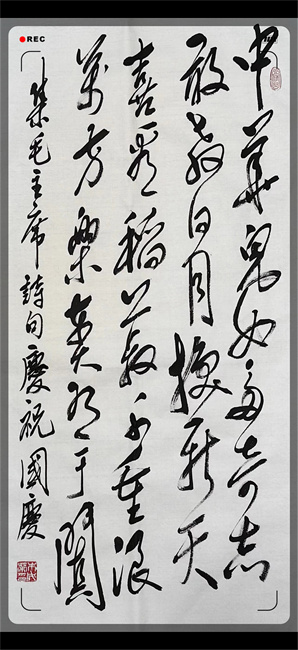 REC
中華兒女多奇志
敢教日月換新天
喜看稻菽千重浪
萬方樂奏有于闐
集毛主席詩句慶祝國慶